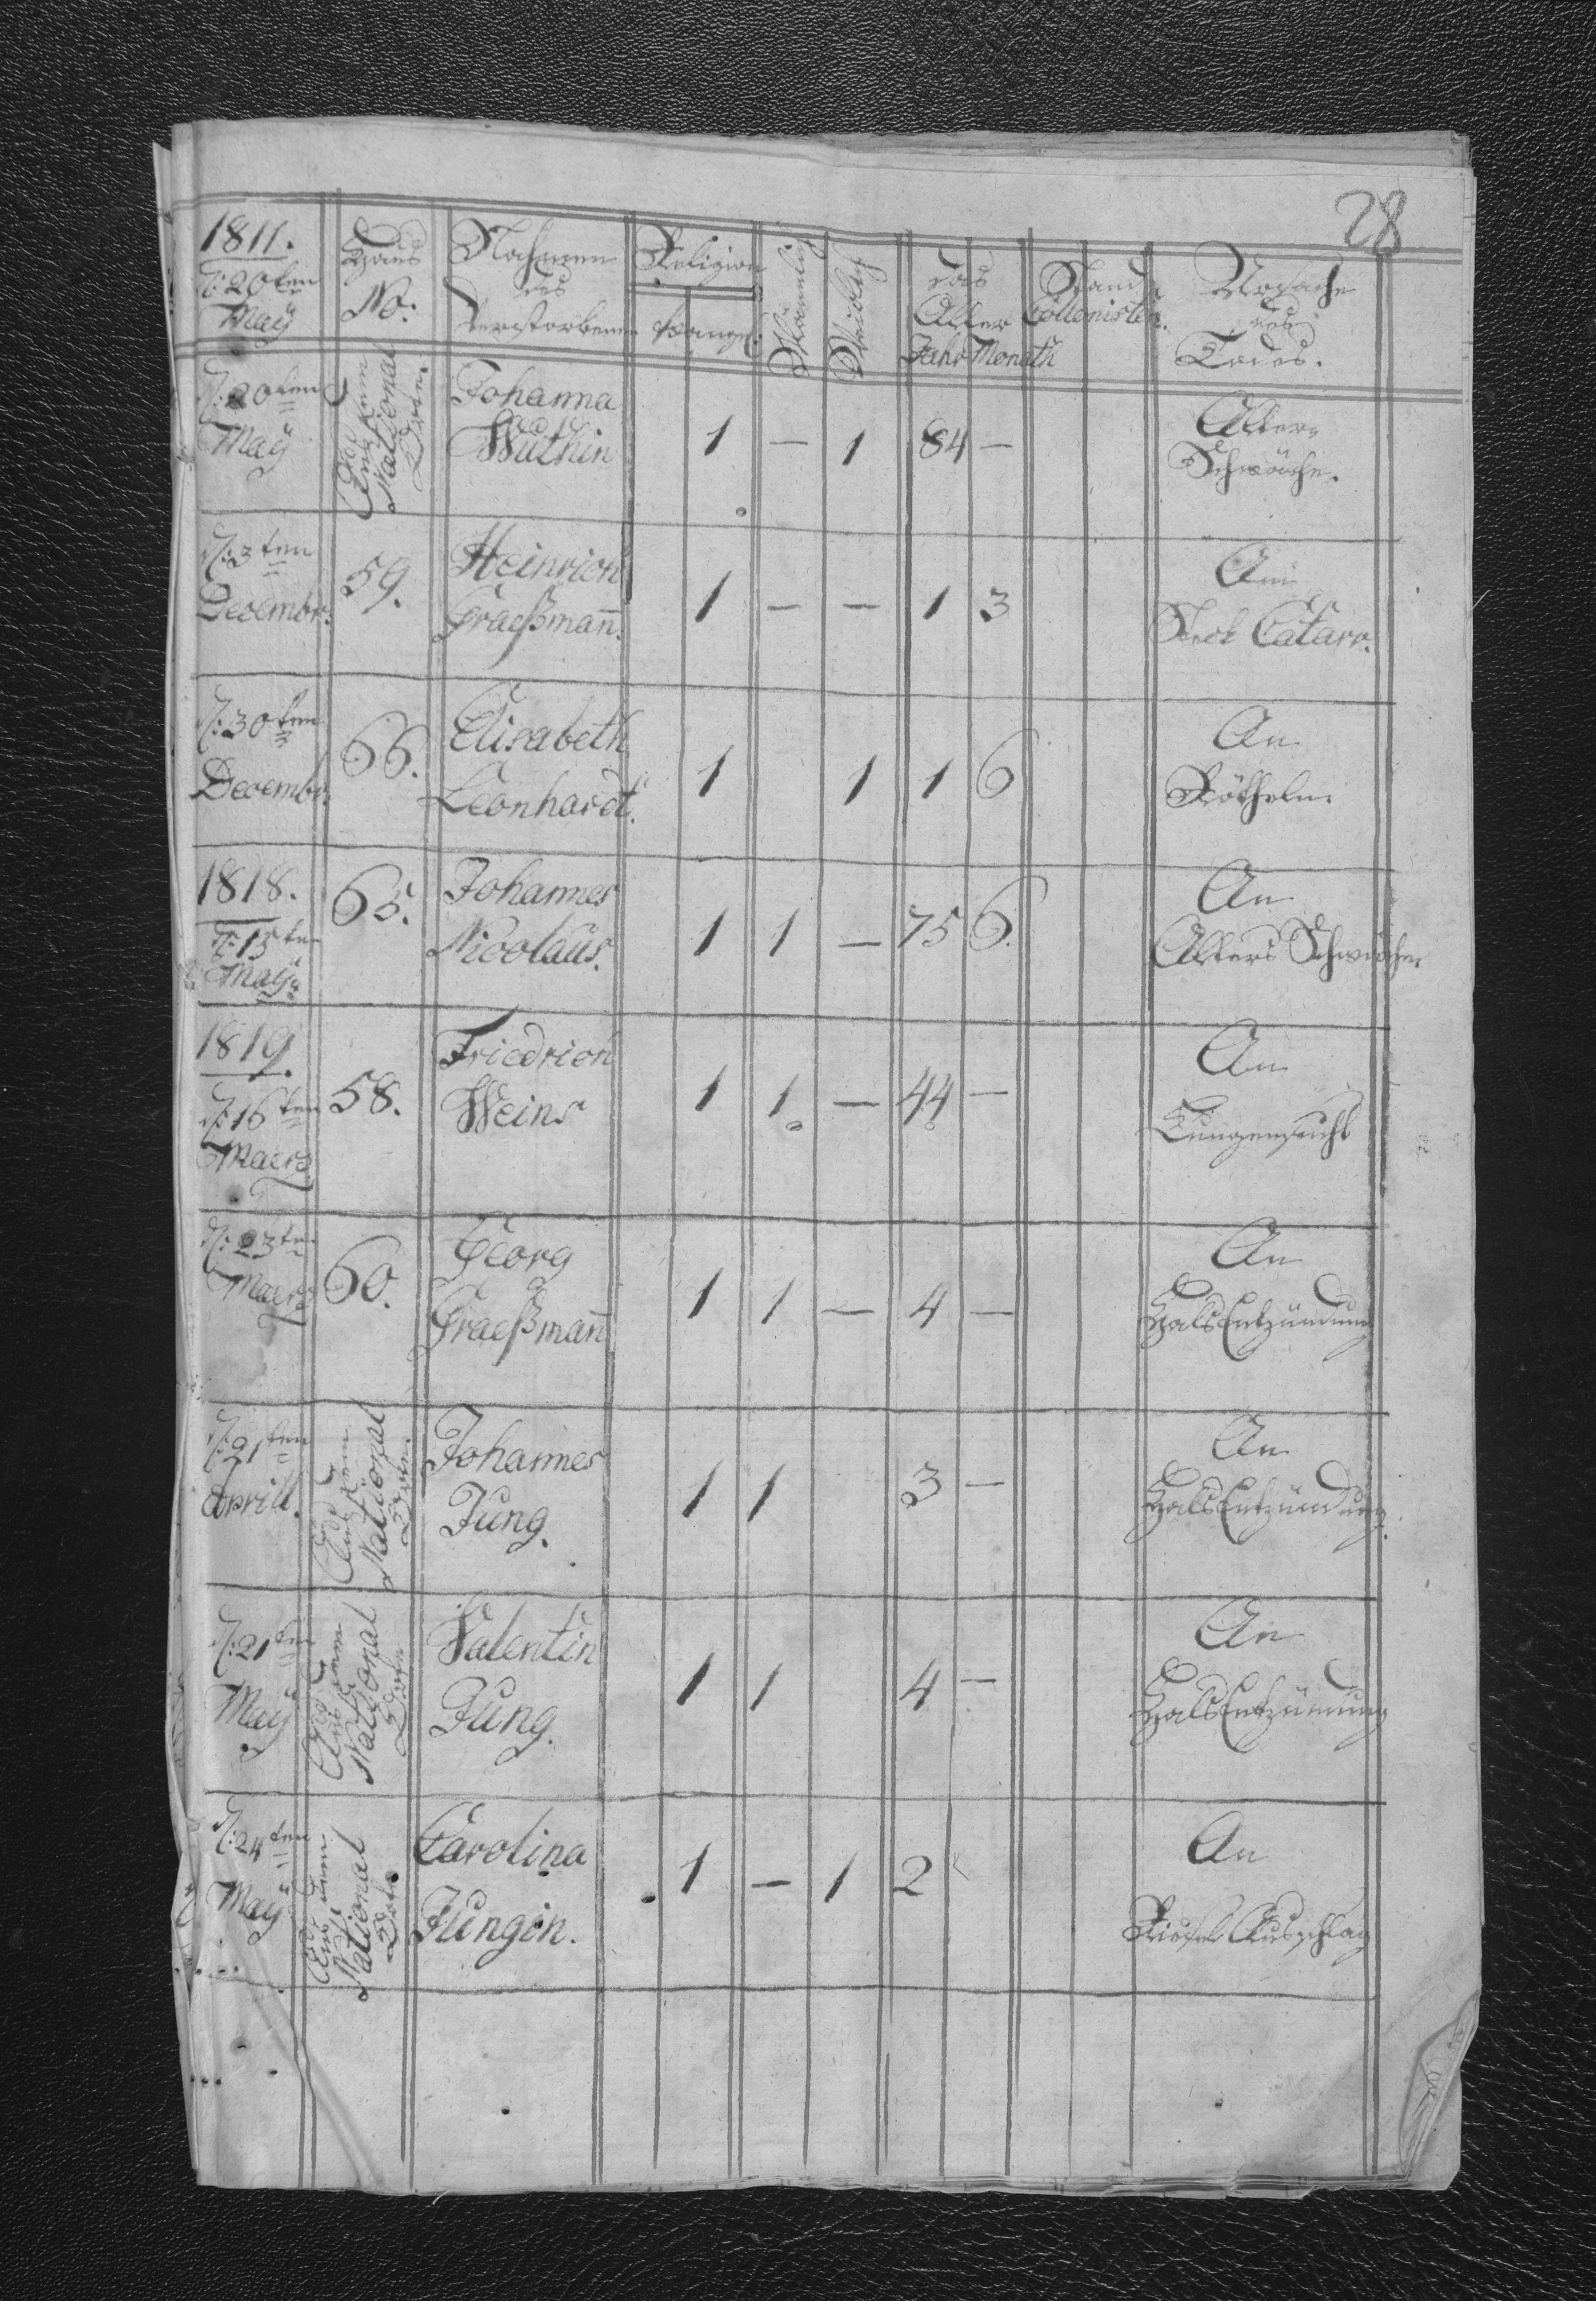 28
1811.
d: 20ten
May
Haus
No:
Nahmen
des
Verstorbenen
Religion
Evangel:
Männlich
Weiblich
das
Alter
Jahr Monath
Stand
Collonisten.
Ursache
des
Todes.
d: 20ten
May
Aus dem
National
Dorfe.
Johanna
Wuthin
1 — 1 84 —
Alters
Schwäche.
d: 3ten
Decembr.
59.
Heinrich
Graeßman̄.
1 — — 1 3
Am
Steck Catarr.
d: 30ten
Decembr.
66.
Elisabeth
Leonhardt.
1 1 1 6
An
Rötheln
1818.
d: 15ten
May.
65.
Johannes
Nicolaus.
1 1 — 75 6.
An
Alters Schwäche
1819.
d: 16ten
Maerz
58.
Friedrich
Weins
1 1. — 44 —
An
Lungensucht
d: 23ten
Maerz
60.
Georg
Graeßman̄
1 1 — 4 —
An
Hals Entzündung
d: 21ten
Aprill.
Aus dem
National
Dorfe.
Johannes
Jung.
1 1 3 —
An
Hals Entzündung.
d: 21ten
May
Aus dem
National
Dorfe
Valentin
Jung.
1 1 4 —
An
Hals Entzündung
d: 24ten
May
Aus dem
National
Dorfe.
Carolina
Jungin.
1 — 1 2
An
Ausschlag